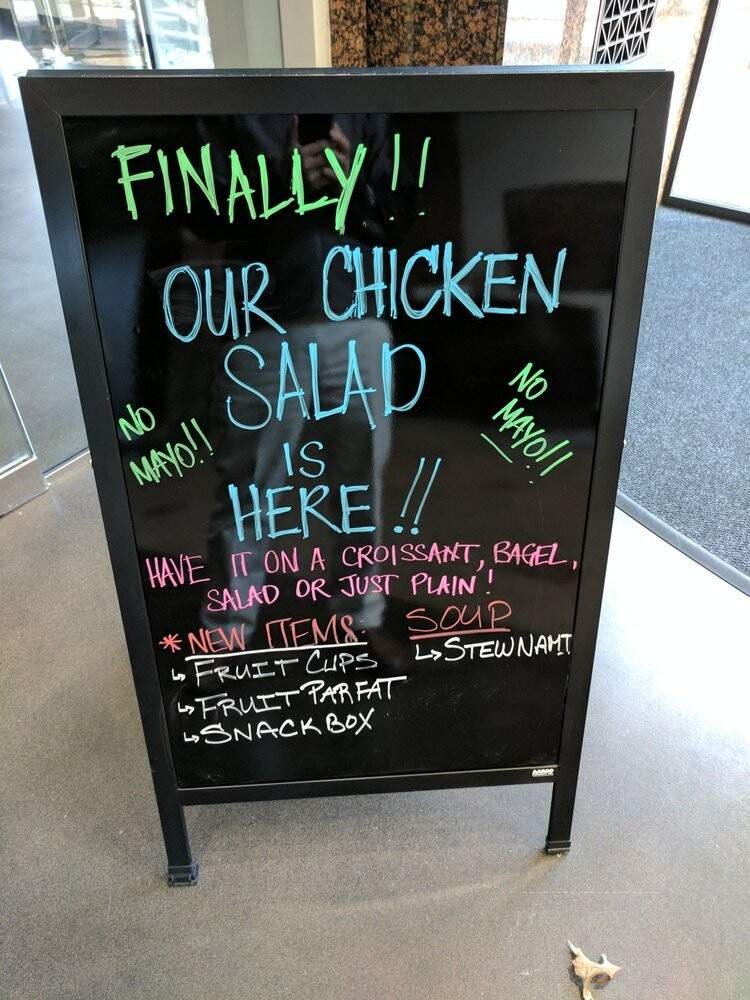 FINALLY!!
OUR CHICKEN
SALAD
IS
HERE!!
NO
MAYO!!
NO
MAYO!!
HAVE IT ON A CROISSANT, BAGEL,
SALAD OR JUST PLAIN!
* NEW ITEMS:
↳ FRUIT CUPS
↳ FRUIT PARFAT
↳ SNACK BOX
SOUP
↳ STEWNAMI